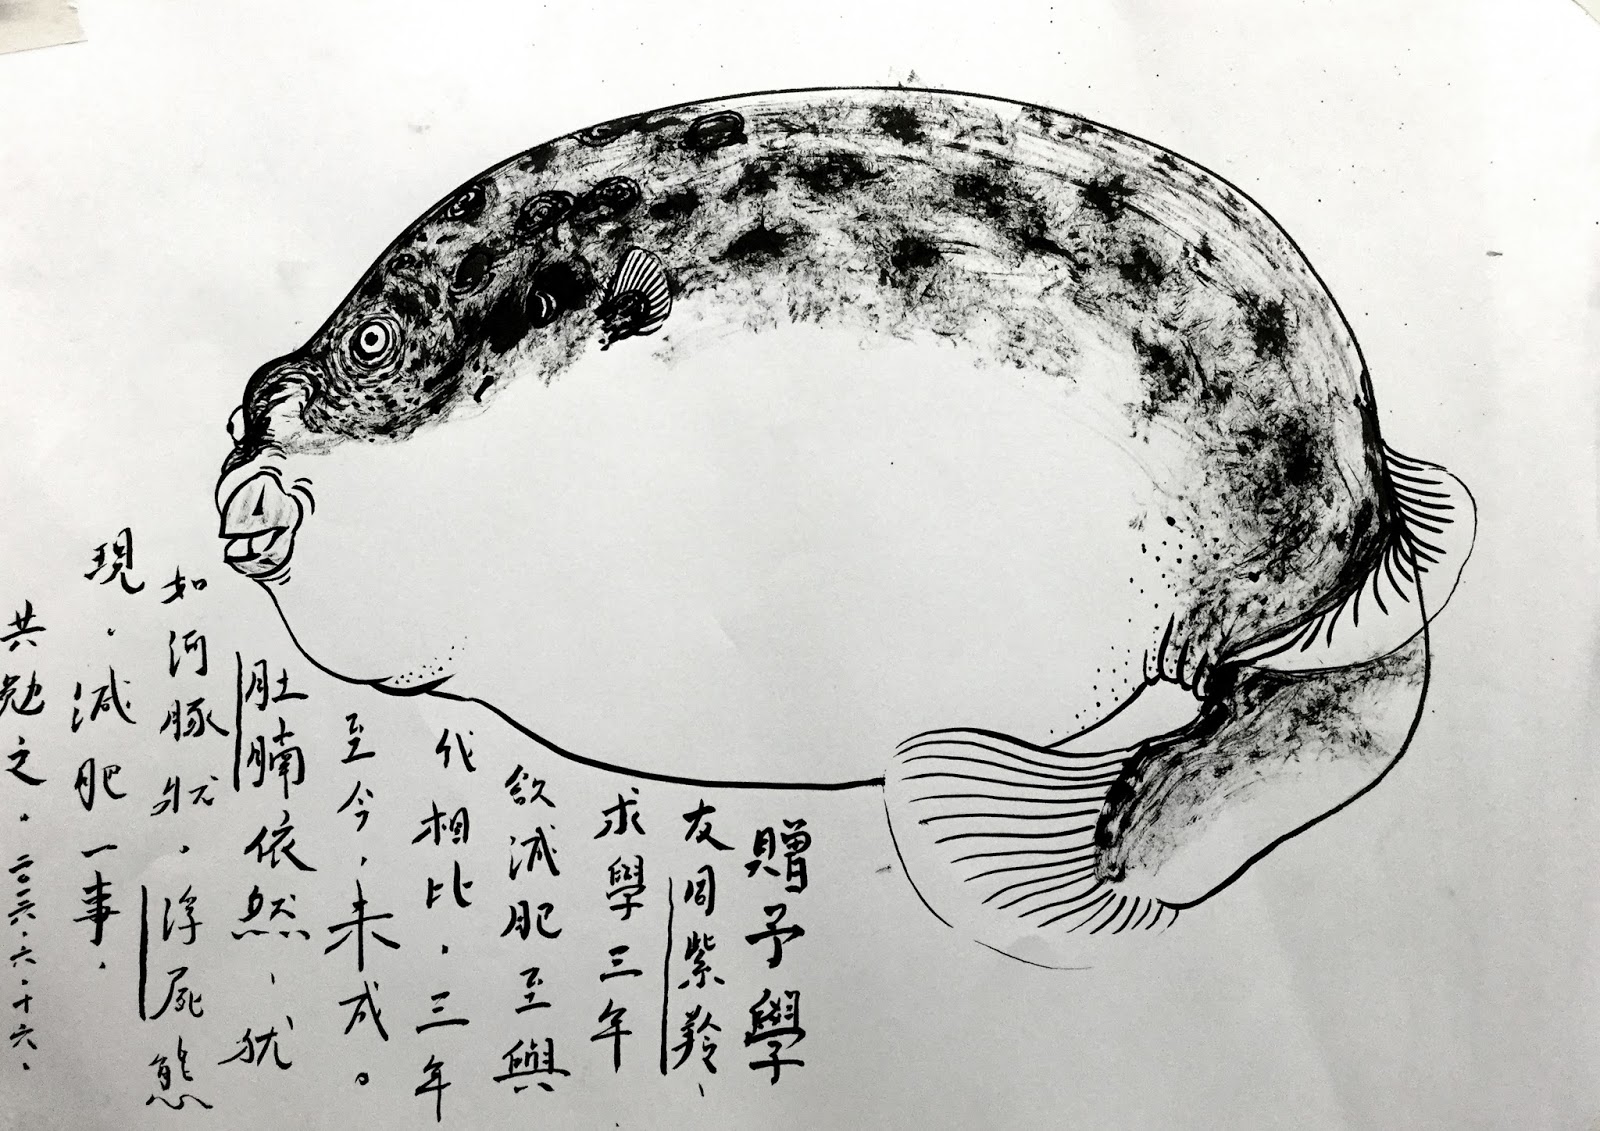 贈予學
友周紫羚、
求學三年
欲減肥至與
代相比，三年
至今，未成。
肚腩依然、猶
如河豚狀，浮屍態
現，減肥一事，
共勉之。二〇一六．六．十六．